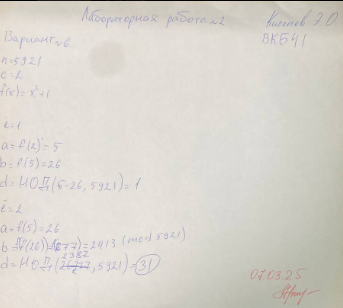 Лабораторная работа №2
ВКБ41
Вариант №6
n=5921
c=2
f(x)=x²+1
i=1
a=f(2)=5
b=f(5)=26
d=НОД(5-26, 5921)=1
i=2
a=f(5)=26
b=f(26)=(677)=2413 (mod 5921)
2387
d=НОД( , 5921)=31
07.03.25